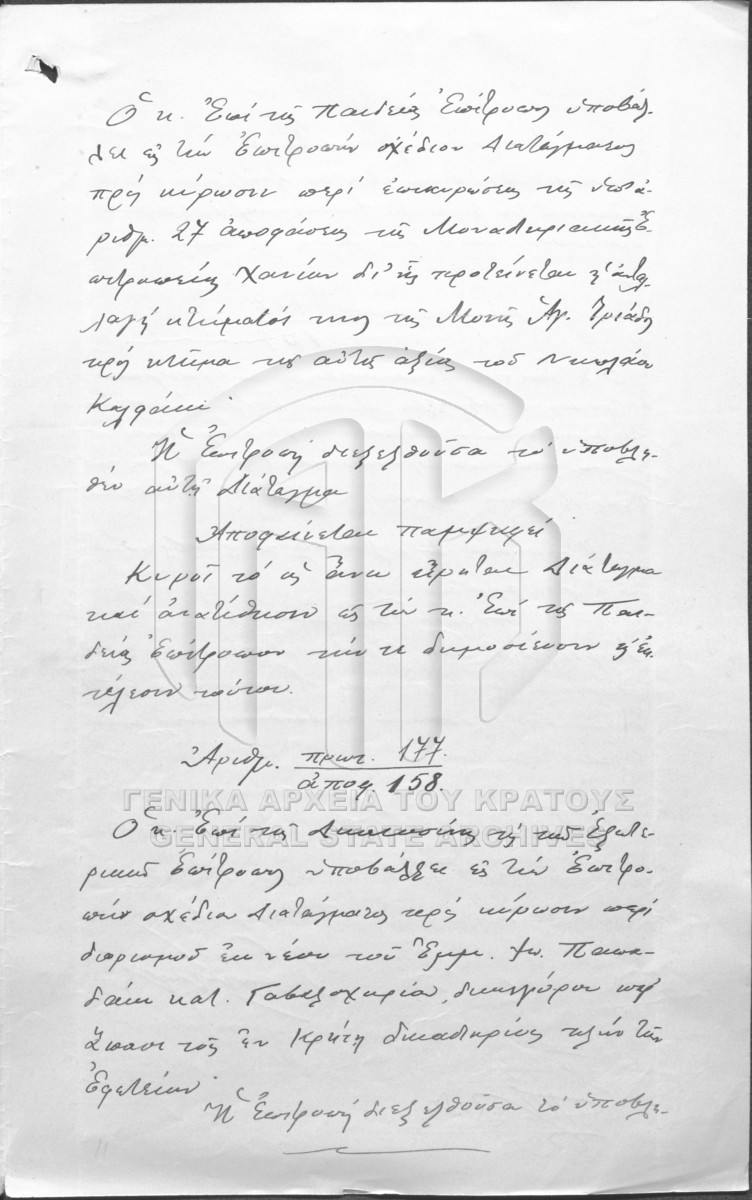 Ὁ κ. Ἐπὶ τῆς Παιδείας Ἐπίτροπος ὑποβάλ-
λει εἰς τὴν Ἐπιτροπὴν σχέδιον Διατάγματος
πρὸς κύρωσιν περὶ ἐπικυρώσεως τῆς ὑπ' ἀ-
ριθμ. 27 ἀποφάσεως τῆς Μοναστηριακῆς Ἐ-
πιτροπείας Χανίων δι' ἧς προτείνεται ἡ ἀνταλ-
λαγὴ κτήματός τινος τῆς Μονῆς Ἁγ. Τριάδος
πρὸς κτῆμα τῆς αὐτῆς ἀξίας τοῦ Νικολάου
Καλφάκι
Ἡ Ἐπιτροπὴ διεξελθοῦσα τὸ ὑποβλη-
θὲν αὐτῇ Διάταγμα
Ἀποφαίνεται παμψηφεί
Κυροῖ τὸ ὡς ἄνω εἴρηται Διάταγμα
καὶ ἀνατίθησιν εἰς τὸν κ. Ἐπὶ τῆς Παι-
δείας Ἐπίτροπον τήν τε δημοσίευσιν κ' ἐκ-
τέλεσιν τούτου.
Ἀριθμ. πρωτ. 177.
ἀποφ. 158.
ΓΕΝΙΚΑ ΑΡΧΕΙΑ ΤΟΥ ΚΡΑΤΟΥΣ
GENERAL STATE ARCHIVES
Ὁ κ. Ἐπὶ τῆς Δικαιοσύνης τῆς τοῦ Ἐξωτε-
ρικοῦ Ἐπίτροπος ὑποβάλλει εἰς τὴν Ἐπιτρο-
πὴν σχέδιον Διατάγματος πρὸς κύρωσιν περὶ
διορισμοῦ ἐκ νέου τοῦ Ἐμμ. Παπα-
δάκι κατ. Γαβαλοχωρίου, δικηγόρου παρ'
ἅπασι τοῖς ἐν Κρήτῃ δικαστηρίοις πλὴν τῶν
Ἐφετείων
Ἡ Ἐπιτροπὴ διεξελθοῦσα τὸ ὑποβλη-